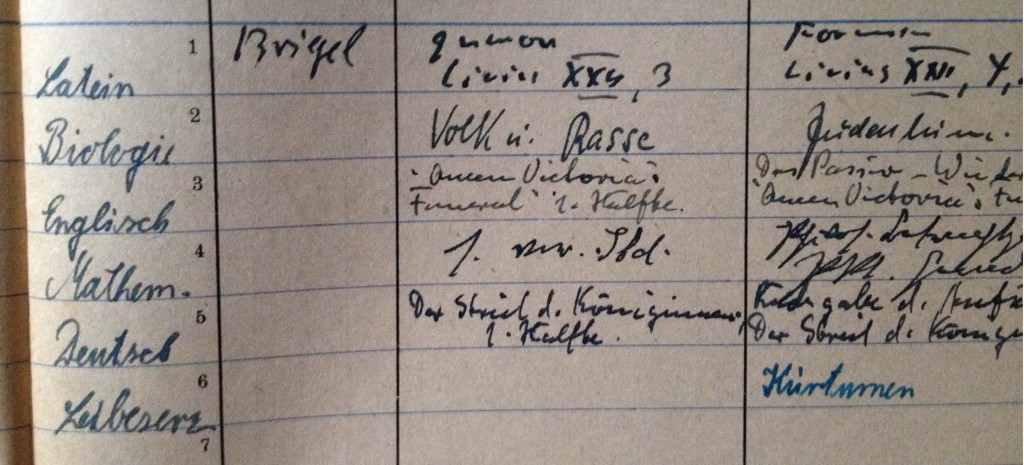 1
Latein
Briegel
Livius XXII, 3
Livius XXII, 4,
2
Biologie
Volk u. Rasse
Judentum.
3
Englisch
"Queen Victoria's
Funeral" 1. Hälfte.
Das Passiv - Wieder
"Queen Victoria's Fu
4
Mathem.
1. vor. Std.
5
Deutsch
Der Streit d. Königinnen,
1. Hälfte.
d.
Der Streit d. Königi
6
Leibeserz.
Kürturnen
7